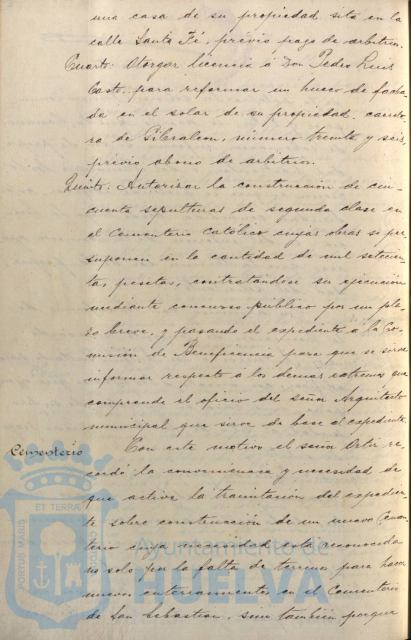 una casa de su propiedad sita en la
calle Santa Fé, previo pago de arbitrios.
Cuarto. Otorgar licencia á Don Pedro Ruiz
para reformar un hueco de facha
da en el solar de su propiedad, carrete
ra de Gibraleon, número treinta y seis,
previo abono de arbitrios.
Quinto. Autorizar la construcción de cin
cuenta sepulturas de segunda clase en
el Cementerio Católico cuyas obras se pre
suponen en la cantidad de mil setecien
tas, pesetas, contratandose su ejecucion
mediante concurso público por un pla
zo breve, y pasando el expediente á la Co
misión de Beneficencia para que se sirva
informar respecto a los demas extremos que
comprende el oficio del señor Arquitecto
municipal que sirve de base al expediente.
Cementerio
Con este motivo el señor Ortiz re
cordó la conveniencia y necesidad de
que active la tramitación del expedien
te sobre construcción de un nuevo Cemen
terio cuya necesidad está reconocida
no solo por la falta de terreno para hacer
nuevos enterramientos en el Cementerio
de San Sebastian, sino también porque
ET TERRA
PORTUS MARIS
Ayuntamiento de
HUELVA